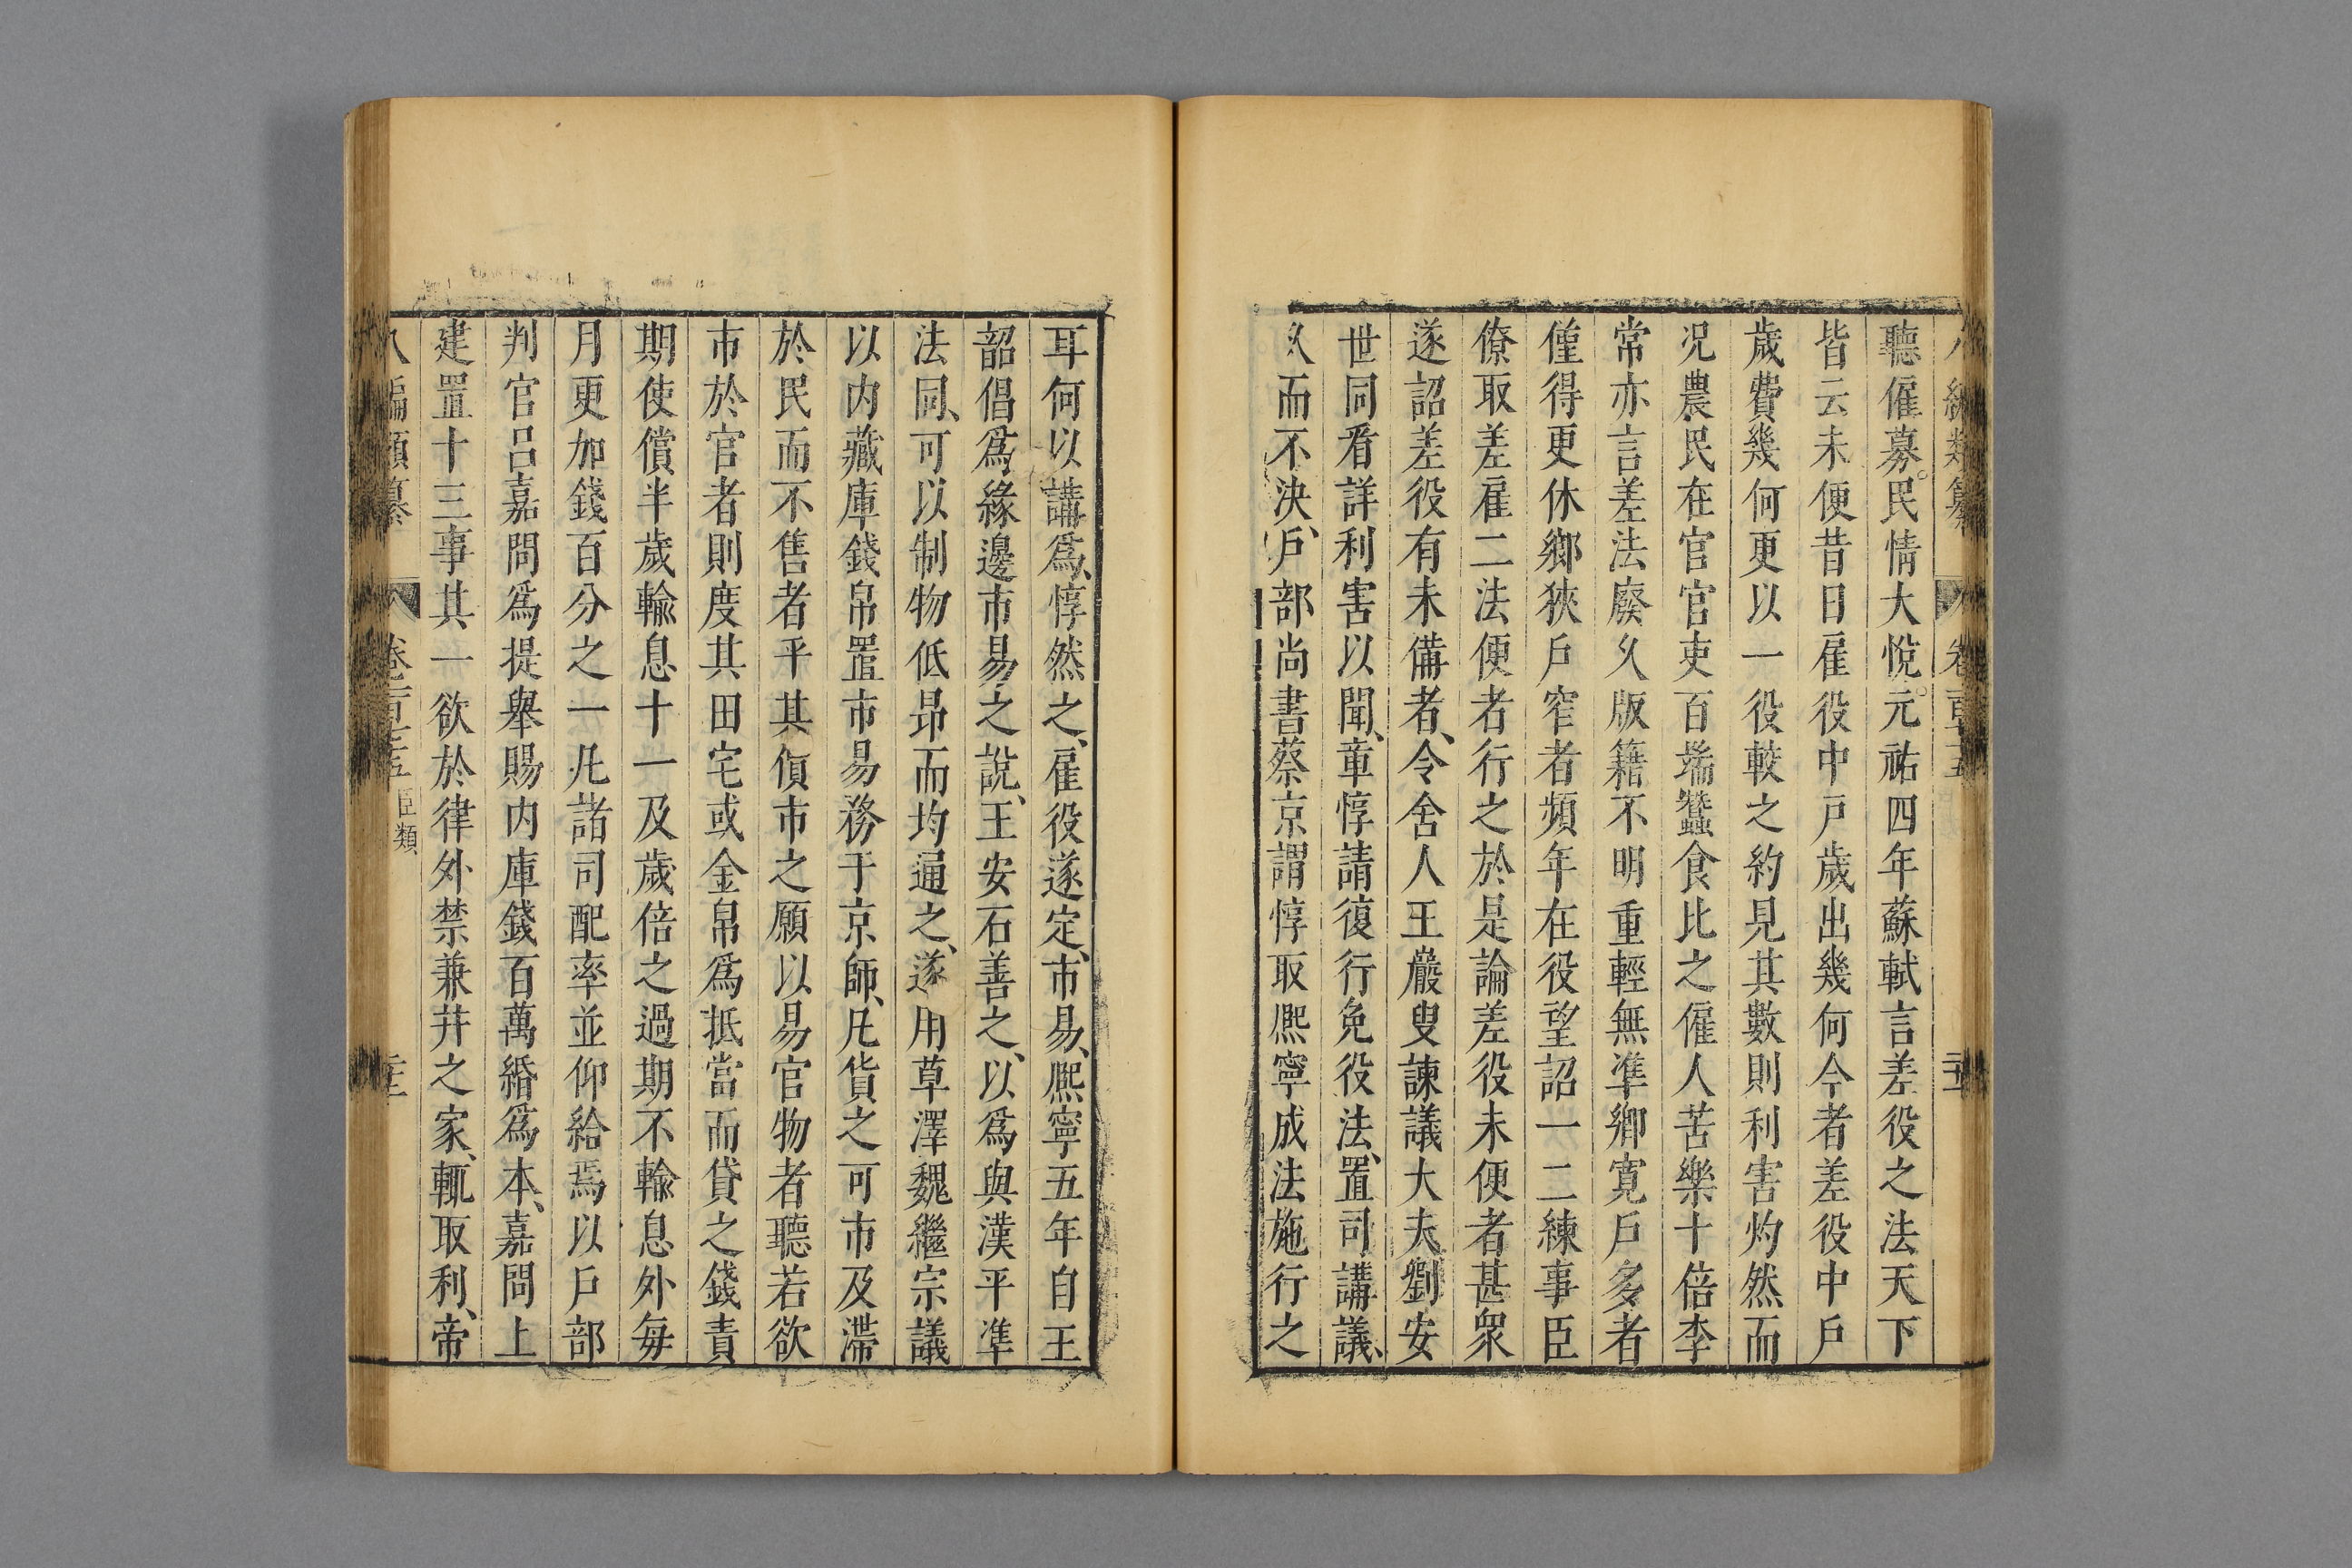 八編類纂 卷百十五
聽僱募。民情大悅。元祐四年蘇軾言差役之法天下
皆云未便昔日雇役中戸歲出幾何今者差役中戸
歲費幾何更以一役較之約見其數則利害灼然而
况農民在官官吏百端蠶食比之僱人苦樂十倍李
常亦言差法廢久版籍不明重輕無準鄉寬戸多者
僅得更休鄉狹戸窄者頻年在役望詔一二練事臣
僚取差雇二法便者行之於是論差役未便者甚衆
遂詔差役有未備者、令舍人王巖叟諫議大夫劉安
世同看詳利害以聞、章惇請復行免役法、置司講議、
久而不決、戸部尚書蔡京謂惇取熈寧成法施行之
耳何以講爲、惇然之、雇役遂定、市易、熈寧五年自王
韶倡爲緣邊市易之說、王安石善之、以爲與漢平準
法同、可以制物低昻而均通之、遂用草澤魏繼宗議
以内藏庫錢帛置市易務于京師、凡貨之可市及滯
於民而不售者平其價市之願以易官物者聽若欲
市於官者則度其田宅或金帛爲抵當而貸之錢責
期使償半歲輸息十一及歲倍之過期不輸息外每
月更加錢百分之一凡諸司配率並仰給焉以戸部
判官吕嘉問爲提舉賜内庫錢百萬緡爲本、嘉問上
建置十三事其一欲於律外禁兼并之家、輒取利、帝
八編類纂 卷百十五 臣類